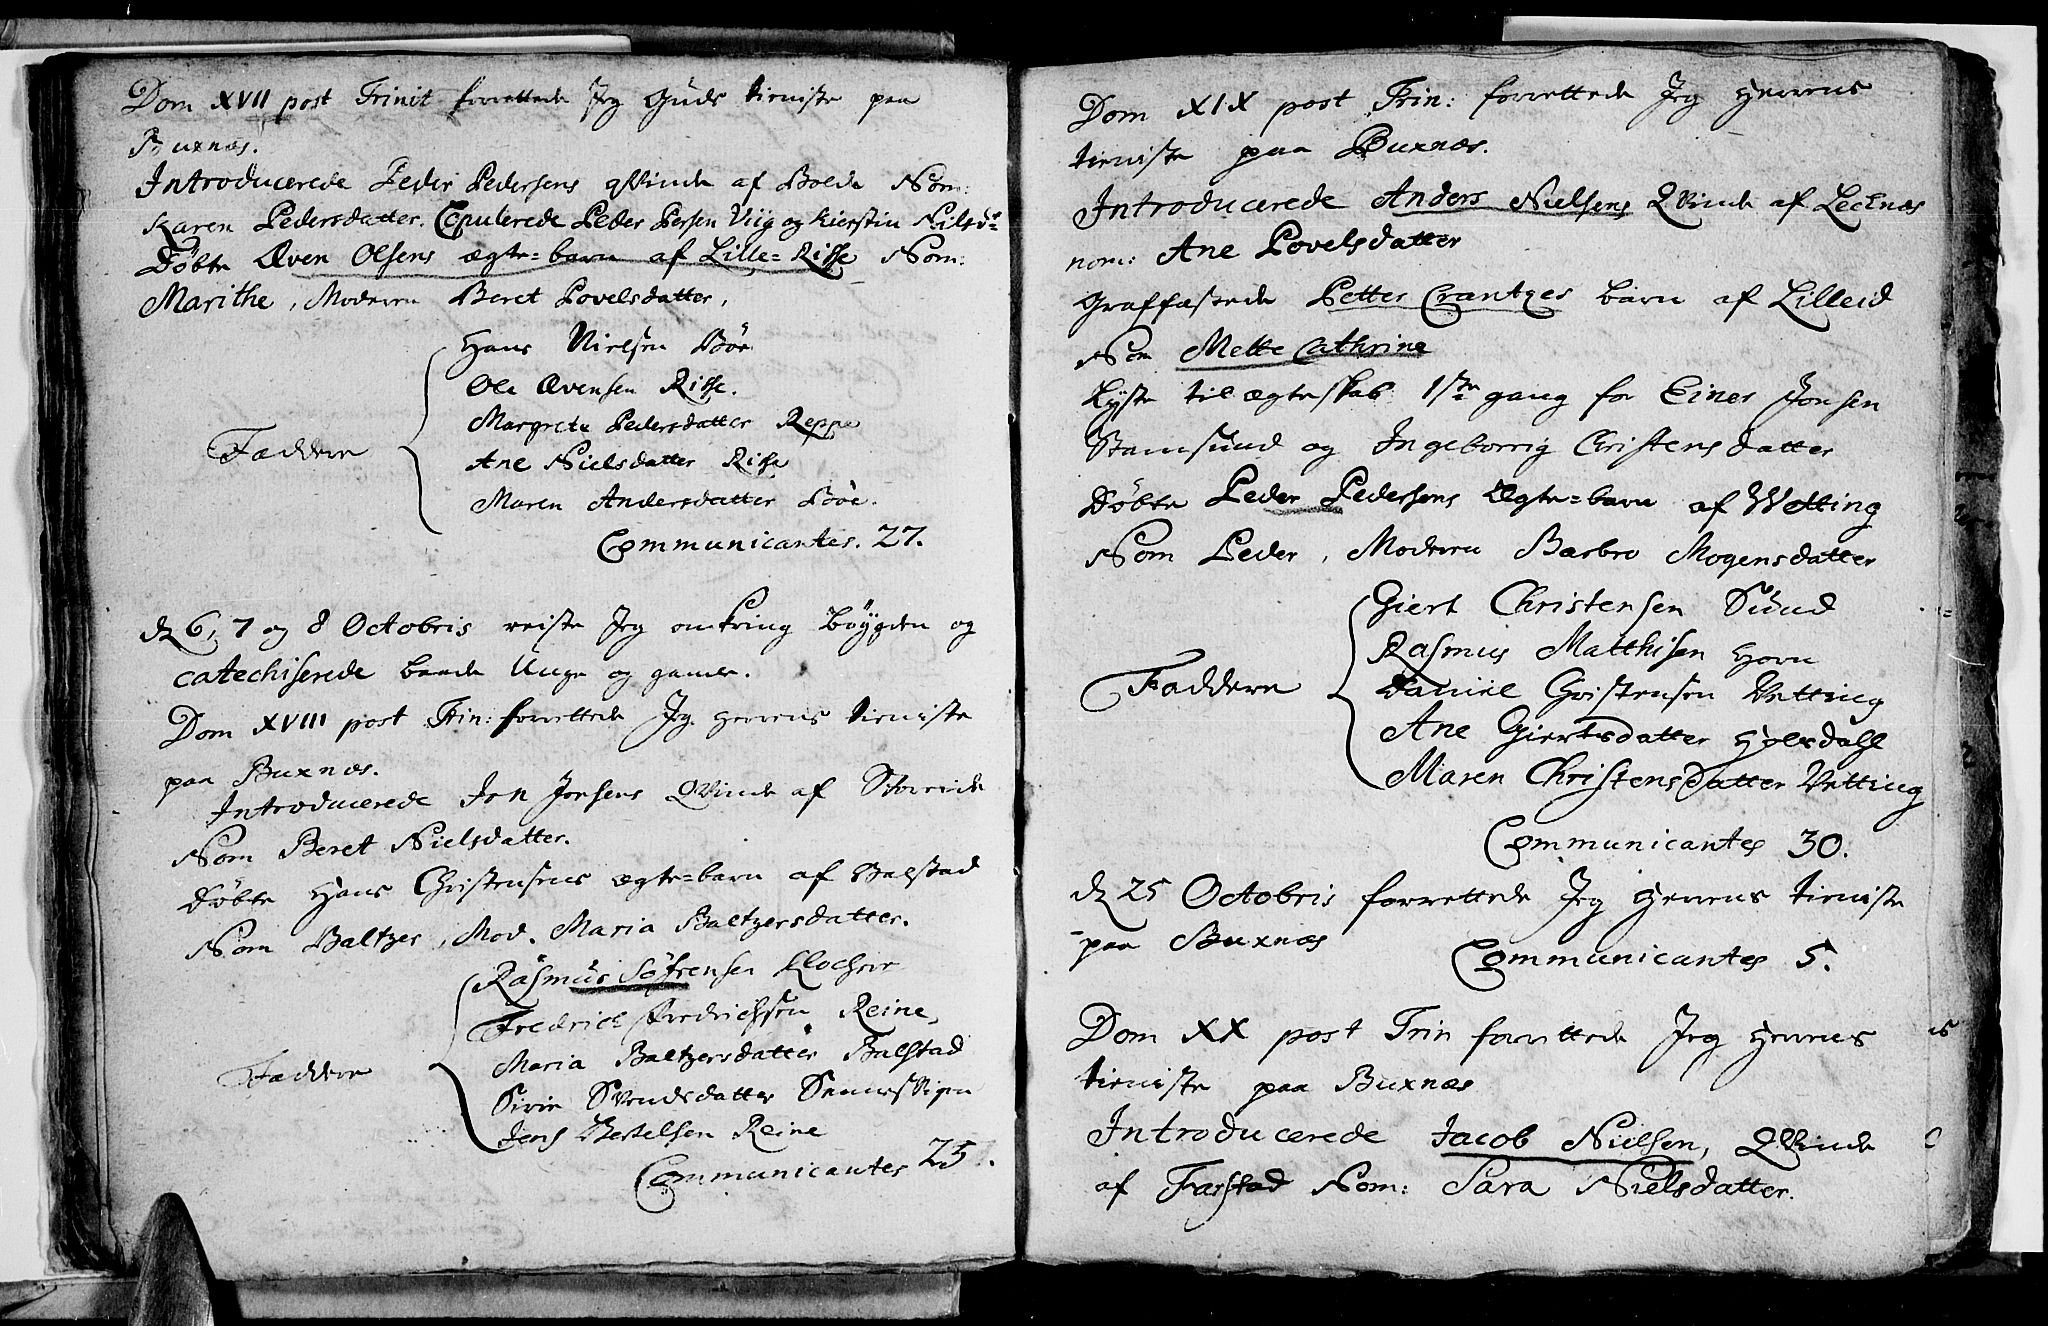 Dom XVII post Trinit forrettede Jeg Guds tieniste paa
Buxnæs.
Introducerede Peder Pedersens qvinde af Bolde Nom:
Karen Pedersdatter. Copulerede Peder Persen Viig og Kierstin Nilsd:
Døbte Even Olsens ægte=barn af Lille=Risse Nom:
Marithe, Moderen Beret Povelsdatter,
Hans Nielsen Böe
Ole Evensen Risse.
Margrete Pedersdatter Reppe
Faddere
Ane Nielsdatter Risse
Maren Andersdatter Böe.
Communicantes. 27.
d 6, 7 og 8 Octobris reiste Jeg omkring Bøygden og
catechiserede baade Unge og gamle.
Dom XVIII post Trin: forrettede Jeg Herrens tieniste
paa Buxnæs.
Introducerede Jon Jonsens Qvinde af
Nom Beret Nielsdatter.
Døbte Hans Christensens ægte=barn af Balstad
Nom Baltzer, Mod. Maria Baltzersdatter.
Rasmus Söfrensen Klocher
Fredrich Fredrichsen Reine,
Maria Baltzersdatter Balstad
Faddere
Sirie Svendsdatter
Jens Bertelsen Reine
Communicantes 25.
Dom XIX post Trin: forrettede Jeg Herrens
tieniste paa Buxnæs.
Introducerede Anders Nielsens Qvinde af Lecknæs
nom: Ane Povelsdatter
Graffæstede Petter Crantzes barn af Lilleid
Nom Mette Cathrine
Lyste til ægteskab 1ste gang for Einer Jonsen
Stamsund og Ingeborrig Christensdatter
Døbte Peder Pedersens Ægte=barn af Wetting
Nom Peder, Moderen Barbro Mogensdatter
Giert Christensen Sund
Rasmus Matthisen Horn
Faddere
Daniel Christensen Vetting
Ane Giertsdatter Holsdahl
Maren Christensdatter Vetting
Communicantes 30.
d 25 Octobris forrettede Jeg Herrens tieniste
paa Buxnæs
Communicantes 5.
Dom XX post Trin forrettede Jeg Herrens
tieniste paa Buxnæs
Introducerede Jacob Nielsen, Qvinde
af Farstad Nom: Sara Nielsdatter.